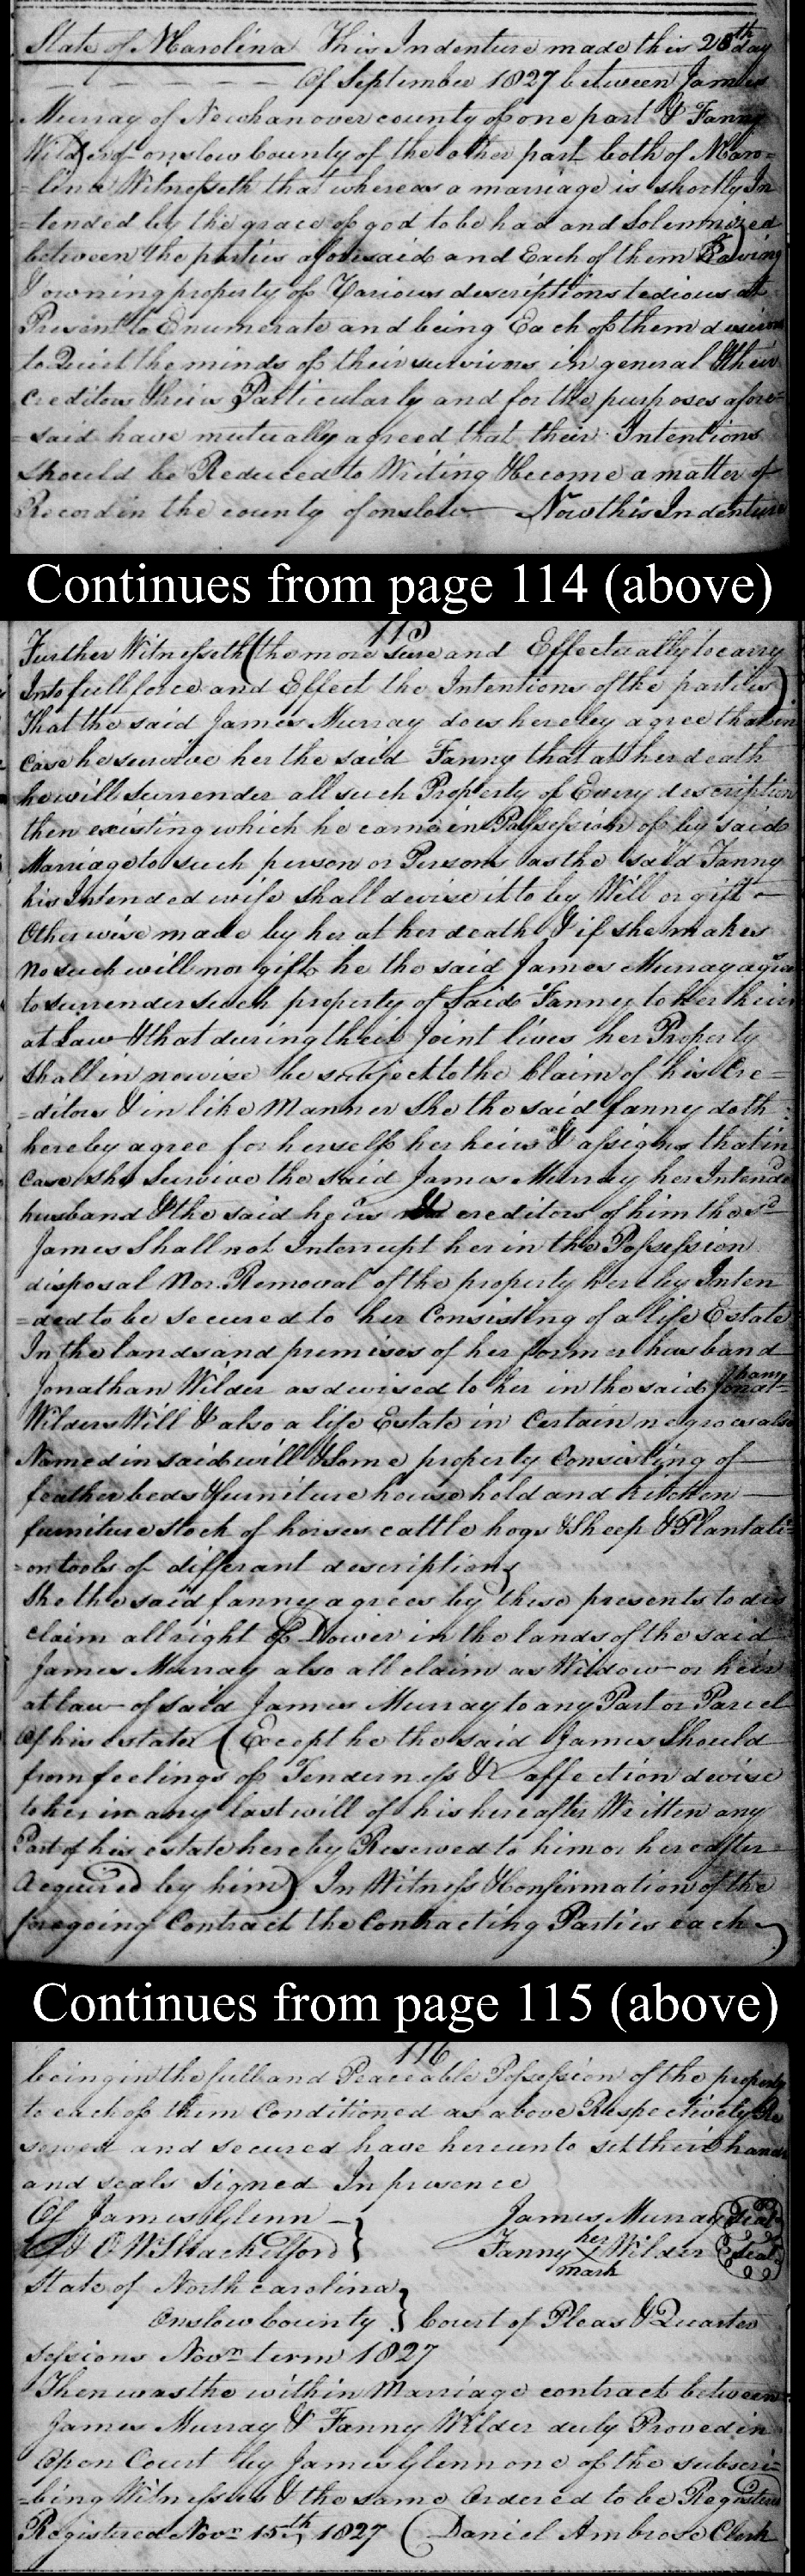 State of N Carolina This Indenture made this 28th day
Of September 1827 between James
Murray of Newhanover county of one part & Fanny
Wilder of onslow County of the other part both of N Caro=
=lina Witnesseth that whereas a marriage is shortly In
=tended by the grace of god to be had and Solemnized
between the parties aforesaid and Each of them Having
& owning property of Various descriptions tedious at
Present to Enumerate and being Each of them desirous
to Quiet the minds of their survivors in general & their
creditors & heirs Particularly and for the purposes afore=
=said have mutually agreed that their Intentions
should be Reduced to Writing & become a matter of
Record in the county of onslow Now this Indenture
Continues from page 114 (above)
115
Further Witnesseth (the more sure and Effectually to carry
Into full force and Effect the Intentions of the parties)
That the said James Murray does hereby agree that in
Case he survive her the said Fanny that at her death
he will Surrender all such Property of Every description
then existing which he came in Possession of by said
Marriage to such person or Persons as the said Fanny
his Intended wife shall devise it to by Will or gift
Otherwise made by her at her death & if she makes
No such will nor gift he the said James Murray agrees
to surrender such property of Said Fanny to her heirs
at Law & that during their Joint lives her Property
Shall in nowise be subject to the Claim of his Cre=
=ditors & in like Manner She the said fanny doth
hereby agree for herself her heirs & assigns that in
Case she Survive the said James Murray her Intended
husband & the said heirs & creditors of him the sd
James Shall not Interrupt her in the Possession
disposal Nor Removal of the property hereby Inten
=ded to be secured to her Consisting of a life Estate
In the lands and premises of her former husband
Jonathan Wilder as devised to her in the said Jonat=
hany
Wilders Will & also a life Estate in Certain negroes also
Named in said will & Some property Consisting of
feather beds & furniture household and kitchen
furniture stock of horses cattle hogs & Sheep & Plantati=
=on tools of differant descriptions
She the said fanny agrees by these presents to dis
claim all right of Dower in the lands of the said
James Murray also all claim as Widow or heir
at law of said James Murray to any Part or Parcel
Of his estate (Except he the said James Should
from feelings of Tenderness & affection devise
to her in any last will of his hereafter Written any
Part of his estate hereby Reserved to him or hereafter
Acquired by him) In Witness & Confirmation of the
foregoing Contract the Contracting Parties each
Continues from page 115 (above)
116
being in the full and Peaceable Possession of the property
to each of them Conditioned as above Respectively Re
served and secured have hereunto set their hands
and seals signed In presence
Of James Glenn James Murray Seal
& O W Shackelford Fanny her X mark Wilder Seal
State of North carolina
Onslow County } Court of Pleas & Quarter
sessions Novr term 1827
Then was the within Marriage contract between
James Murray & Fanny Wilder duly Proved in
Open Court by James Glenn one of the subscri=
=bing Witnesses & the same Ordered to be Registered
Registered Novr 15th 1827 (Daniel Ambrose Clerk